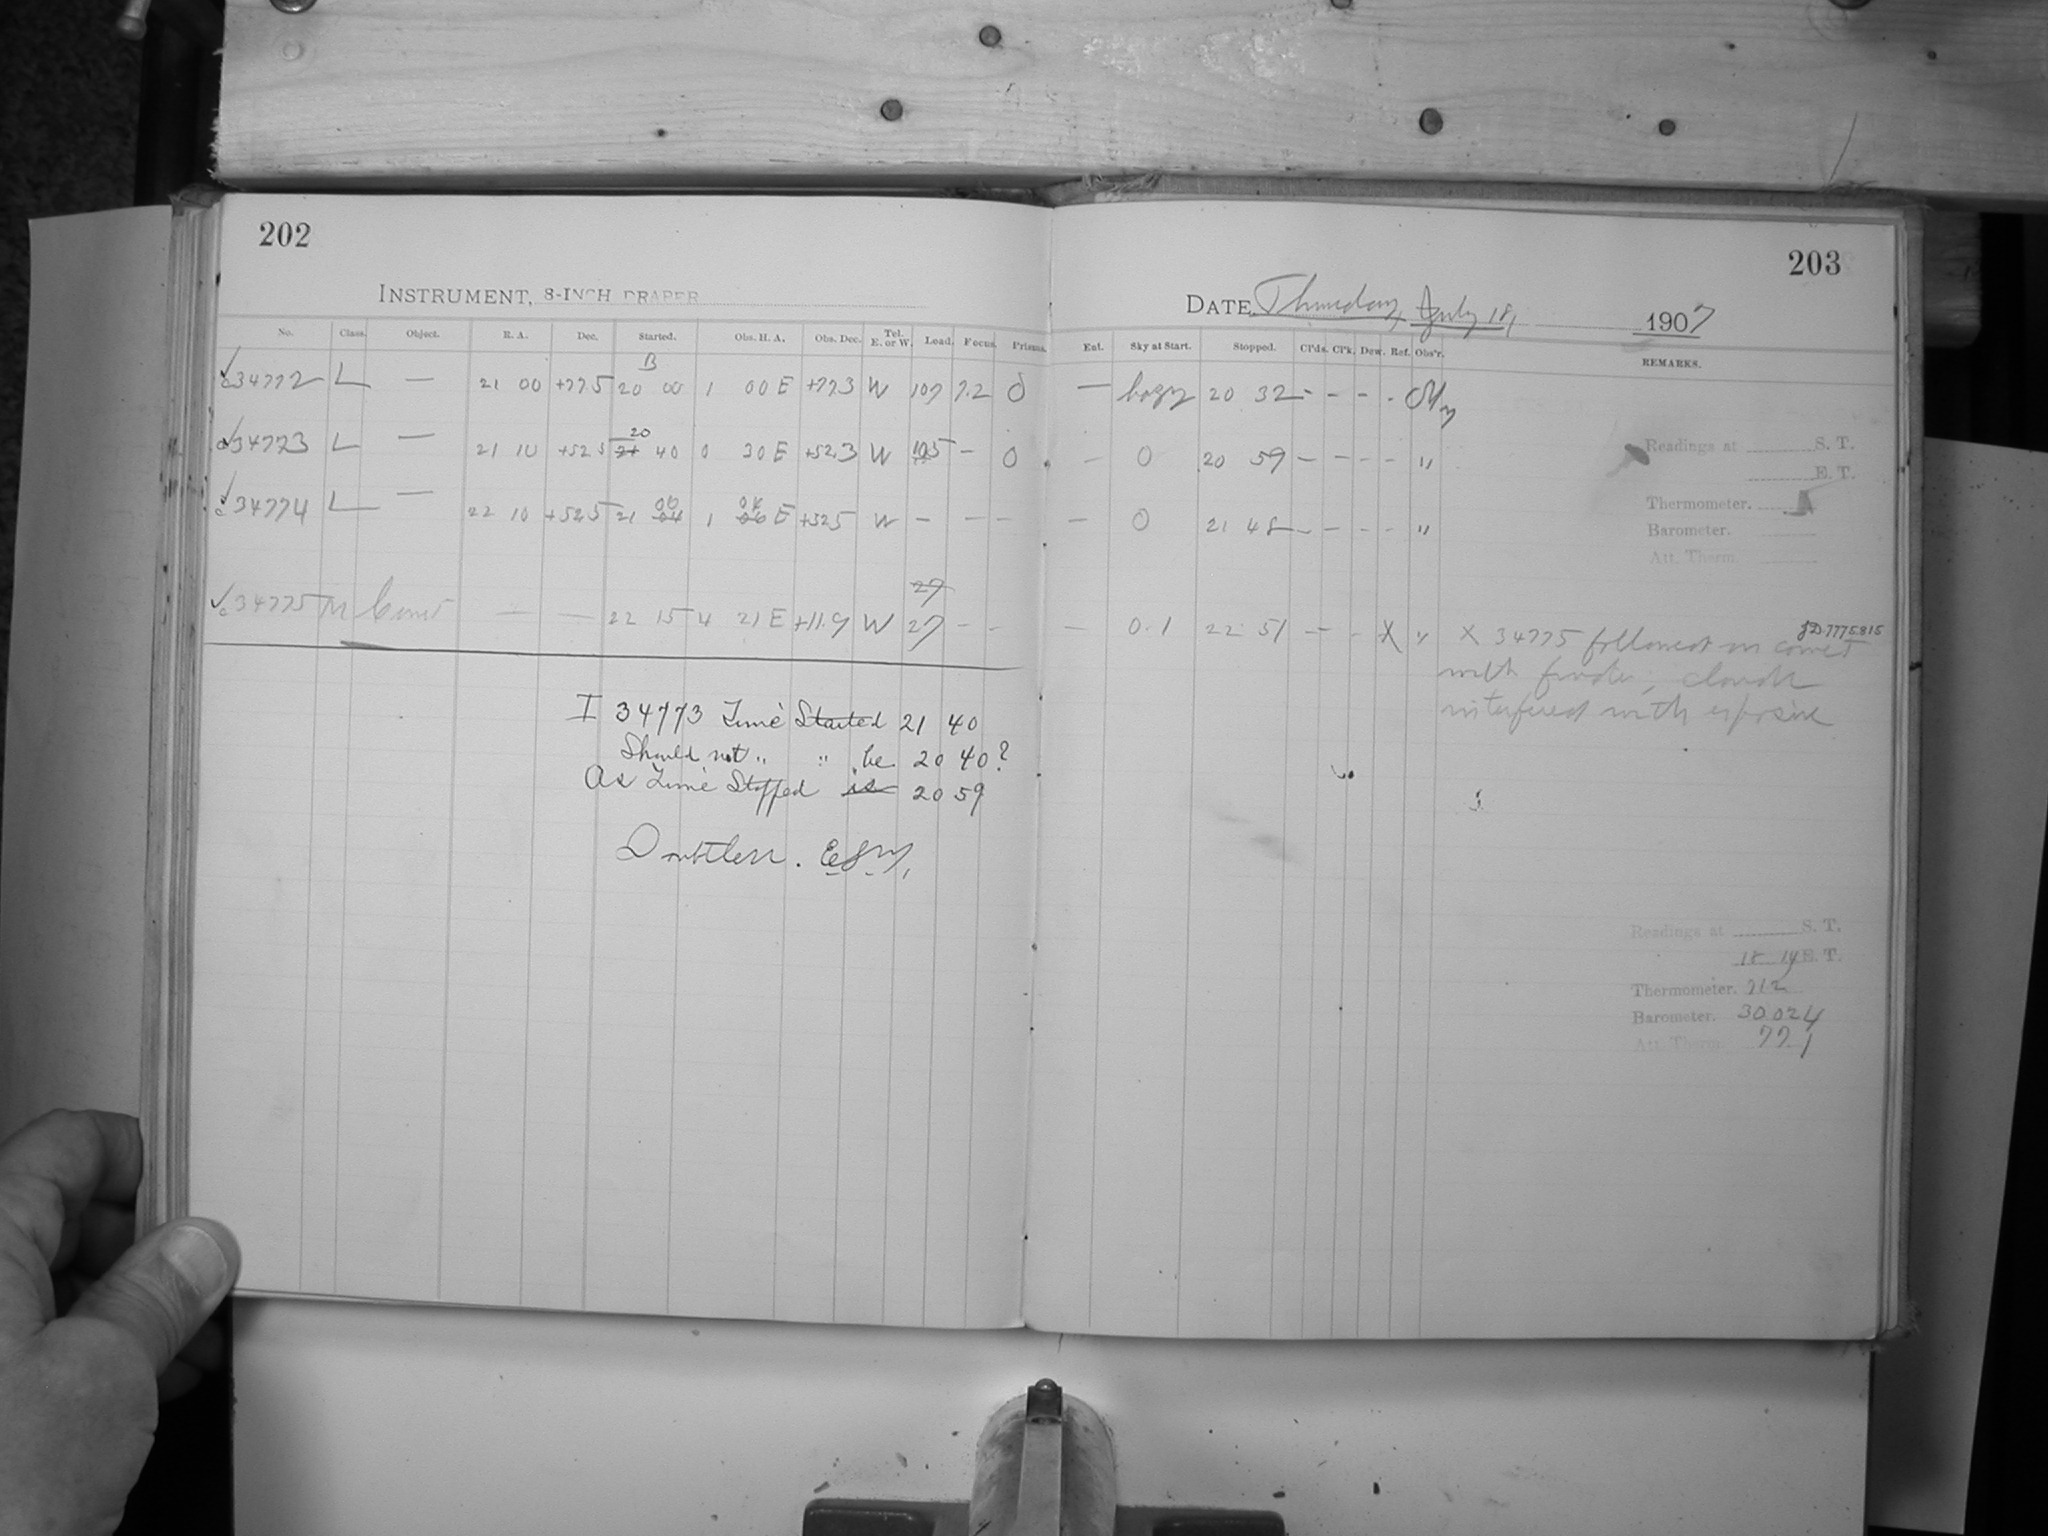 202
INSTRUMENT, 8-INCH DRAPER
No. Class. Object. R. A. Dec. Started. Obs. H. A. Obs. Dec. Tel. E. or W. Load. Focus. Prisms.
B
✓c34772 L — 21 00 +77.5 20 00 1 00 E +77.3 W 107 7.2 0
20
✓c34773 L — 21 10 +52.5 21 40 0 30 E +52.3 W 105 - 0
00 04
✓c34774 L — 22 10 +52.5 21 04 1 06 E +52.5 W - - -
27
✓c34775 M Comet — — 22 15 4 21 E +11.9 W 27 - -
I 34773 Time Started 21 40
Should not " " be 20 40?
As Time Stopped is 20 59
Doubtless.
203
DATE, Thursday, July 18, 1907
Ent. Sky at Start. Stopped. Cl'ds. Cl'k. Dew. Ref. Obs'r. REMARKS.
— hazy 20 32 - - - -
- 0 20 59 - - - - "
- 0 21 48 - - - - "
- 0.1 22 51 - - - X " X 34775 followed on comet
JD.7775.815
with finder; clouds
interfered with exposure
Readings at S. T.
E. T.
Thermometer.
Barometer.
Att. Therm.
Readings at S. T.
18 14 E. T.
Thermometer. 71.2
Barometer. 30.024
Att. Therm. 77.1